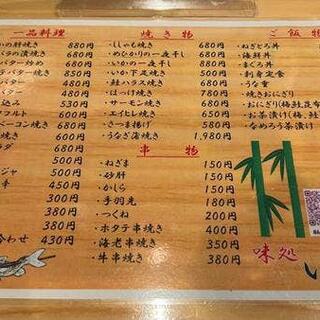 一品料理
の肝焼き 880円
バラの漬焼き 680円
バター炒め 680円
バター焼き 580円
680円
600円
込み 530円
フコルト 630円
ベーコン焼き 600円
焼き 580円
ラダ 680円
500円
ジャ 500円
手 450円
300円
400円
350円
わせ 430円
焼き物
・ししゃも焼き 680円
・めひかりの一夜干し 680円
・いかの一夜干し 680円
・いか下足焼き 500円
・鮭ハラス焼き 580円
・ほっけ焼き 780円
・サーモン焼き 680円
・エイヒレ焼き 500円
・さつま揚げ 580円
・うなぎ蒲焼き 1,980円
串物
・ねぎま 150円
・砂肝 150円
・かしら 150円
・手羽先 200円
・つくね 200円
・ホタテ串焼き 380円
・海老串焼き 350円
・牛串焼き 380円
ご飯物
・ねぎとろ丼
・海鮮丼
・まぐろ丼
・刺身定食
・うな重
・焼きおにぎり
・おにぎり(梅,鮭,昆布
・お茶漬け(梅,鮭
・なめろう茶漬け
味処
い